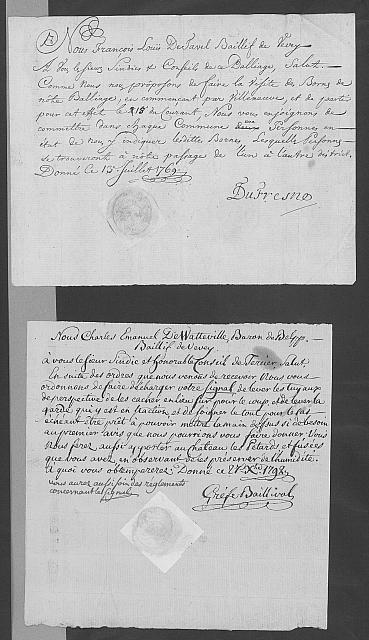 Nous François Louis De Tavel Baillif de Vevey
A Vous les Sieurs Sindics & Conseils de ce Balliage, Salut.
Comme Nous nous proposons de faire la Visite des Bornes de
nôtre Balliage, en commençant par Villeneuve, et de partir
pour cet effet le 218 du Courant, Nous vous enjoignons de
committre dans chaque Commune Personnes
en état de nous y indiquer lesdittes Bornes, Lesquelles Personnes
se trouveront à nôtre passage de l'un à l'autre district.
Donné ce 15 Juillet 1769.
DuFresne
Nous Charles Emanuel De Watteville, Baron de Belpp.
Baillif de Vevey
à vous le Sieur Sindic et honorable Conseil de Salut,
En suite des ordres que nous venons de recevoir Nous vous
ordonnons de faire décharger votre Signal de lever les tuyaux
de perspective de les cacher en lieu sur pour le coup et de lever la
garde qui y est en faction, et de soigner le tout pour le cas
échéant être prêt à pouvoir mettre la main dessus si de besoin
au premier avis que nous pourrions vous faire donner. Vous
nous ferez aussi y porter au chateau les Petards et fusées
que vous avez en observant de les préserver de l'humidité.
à quoi vous obtempererez; Donné ce Xbre 1792.
vous aurez aussi soin des reglements
concernant le Signal
Gréfe Baillival